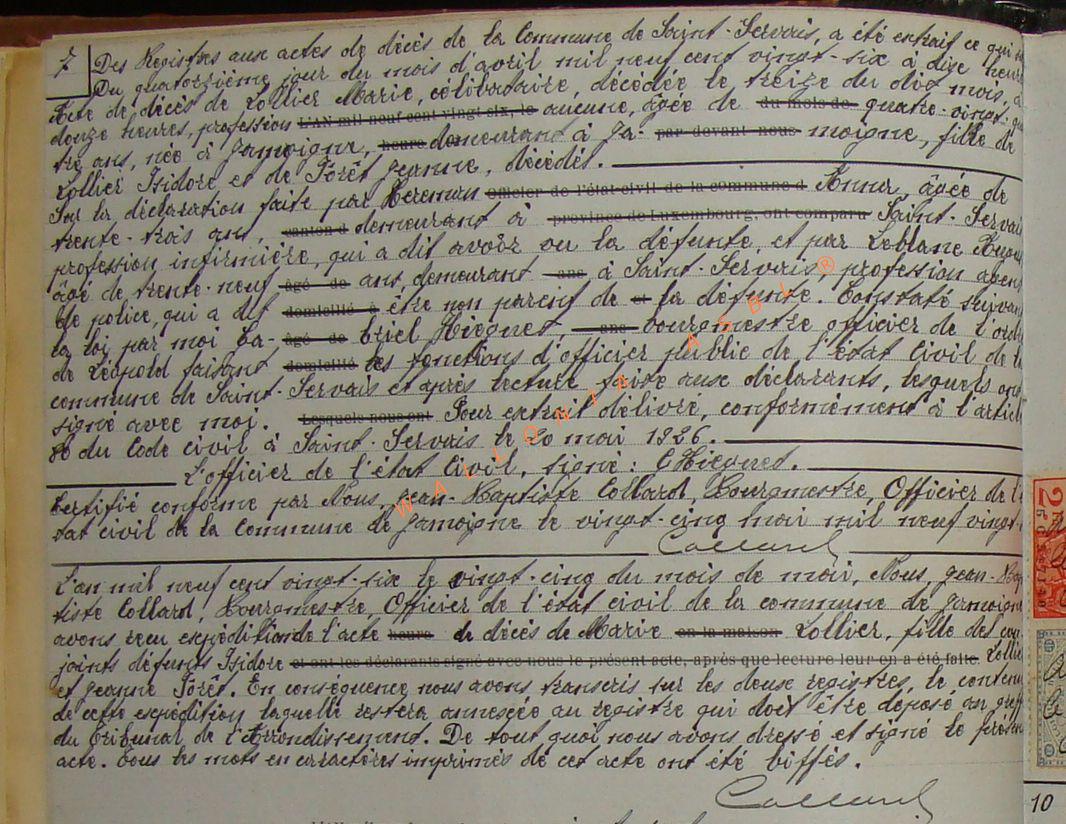 7
Des Registres aux actes de décès de la Commune de Saint-Servais, a été extrait ce qui
Du quatorzième jour du mois d'avril mil neuf cent vingt-six à dix heures
Acte de décès de Lollier Marie, célibataire, décédée le treize du dit mois, à
douze heures, profession L'AN mil neuf cent vingt six, le aucune, âgée de du mois de quatre-vingt-qua
tre ans, née à Jamoigne, heure demeurant à Ja- par devant nous moigne, fille de
Lollier Isidore et de Forêt Jeanne, décédés.
Sur la déclaration faite par Hereman Officier de l'état civil de la commune d Anna, âgée de
trente-trois ans, canton d demeurant à province de Luxembourg, ont comparu Saint-Servais
profession infirmière, qui a dit avoir vu la défunte, et par Leblanc
âgé de trente-neuf âgé de ans, demeurant ans à Saint-Servais, profession agent
de police, qui a dit domicilié à être non parent de et la défunte. Constaté suivant
la loi, par moi Ga- âgé de briel Hicguet ans bourgmestre officier de l'ordre
de Léopold faisant domicilié les fonctions d'officier public de l'état Civil de la
commune de Saint-Servais et après lecture faite aux déclarants, lesquels ont
signé avec moi. Lesquels nous ont Pour extrait délivré, conformément à l'article
80 du Code civil à Saint-Servais le 20 mai 1926.
L'officier de l'état Civil, signé:
Certifié conforme par Nous, Jean-Baptiste Collard, Bourgmestre, Officier de l'é
tat civil de la Commune de Jamoigne le vingt-cinq mai mil neuf vingt-
Collard
L'an mil neuf cent vingt-six le vingt-cinq du mois de mai, Nous, Jean-Bap
tiste Collard, Bourgmestre, Officier de l'état civil de la commune de Jamoigne
avons reçu expédition de l'acte heure de décès de Marie en la maison Lollier, fille des con
joints défunts Isidore et ont les déclarants signé avec nous le présent acte, après que lecture leur en a été faite. Lollier
et Jeanne Forêt. En conséquence nous avons transcris sur les deux registres, le contenu
de cette expédition laquelle restera annexée au registre qui doit être déposé au greffe
du tribunal de l'arrondissement. De tout quoi nous avons dressé et signé le présent
acte. Tous les mots en caractères imprimés de cet acte ont été biffés.
Collard
10
WALLONIA ASBL ®